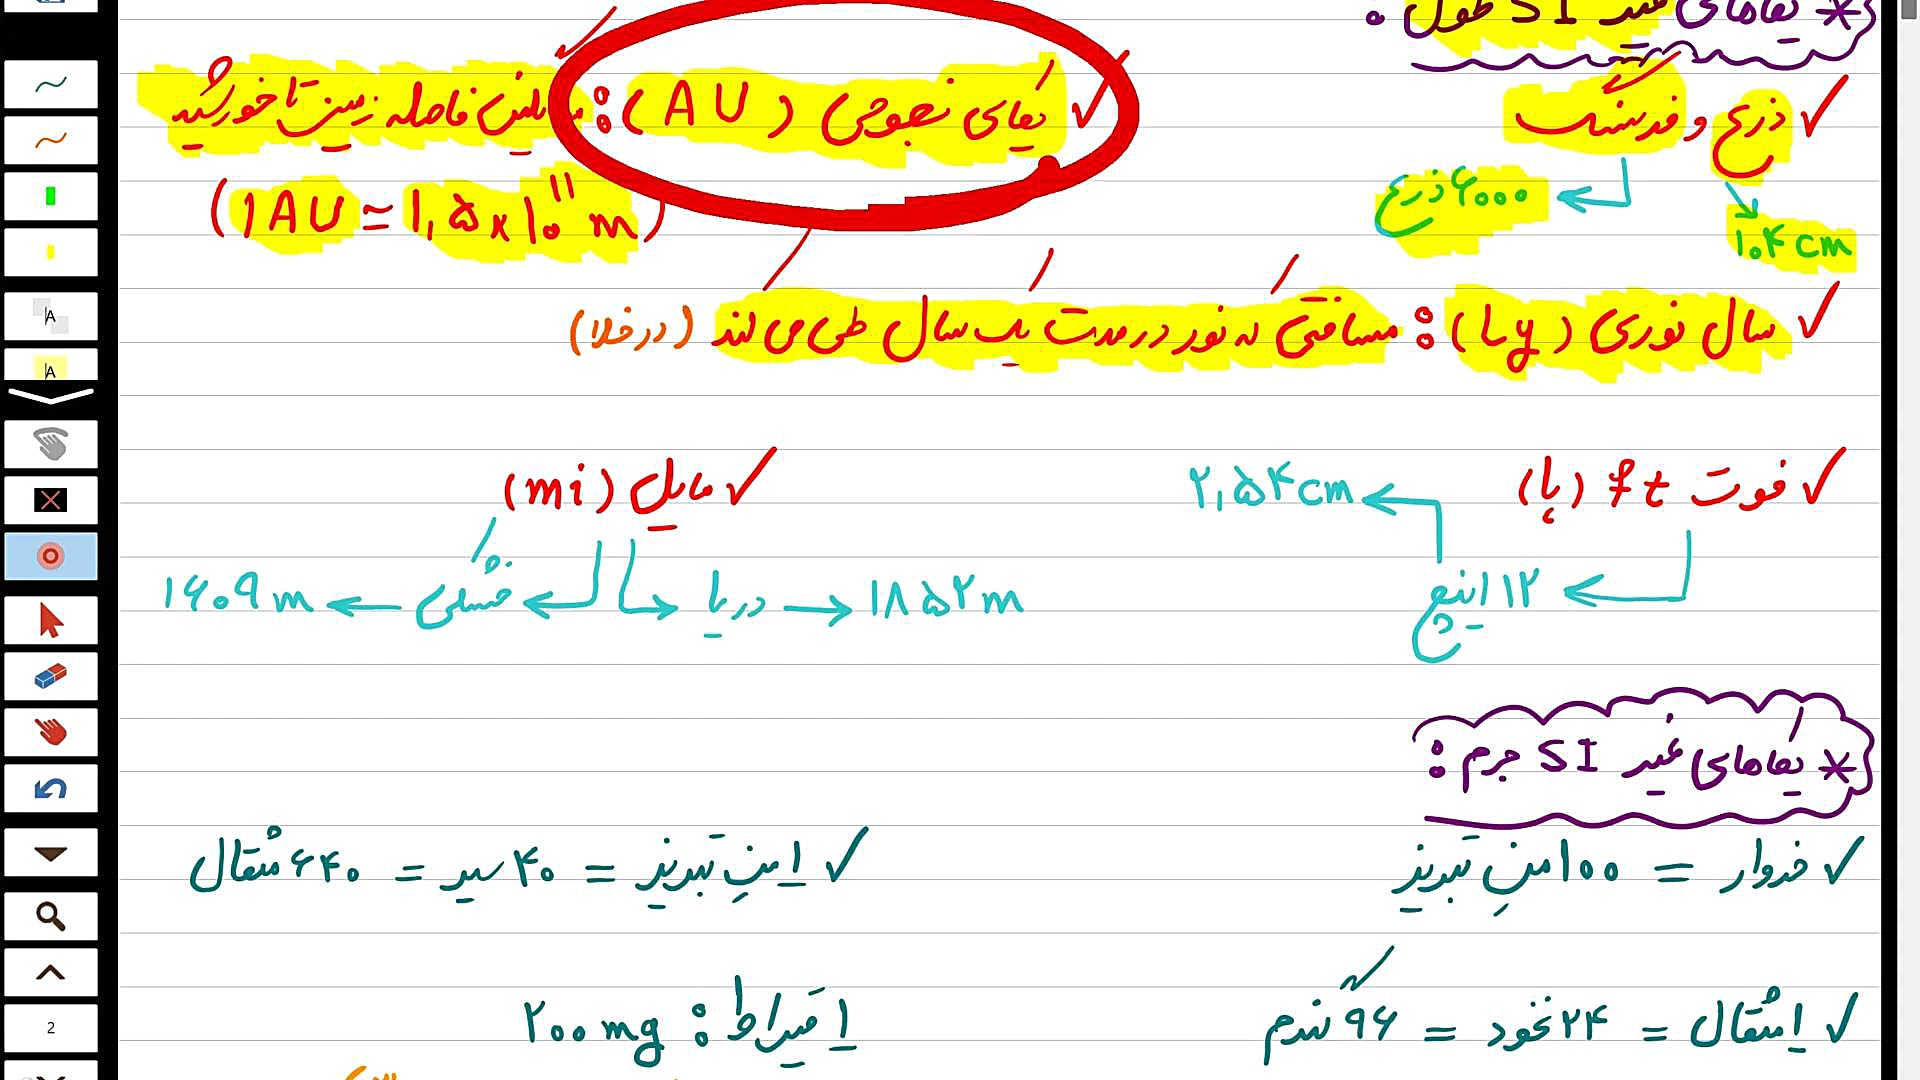 * یکاهای غیر SI طول :
✓ ذرع و فرسنگ
۶۰۰۰ ذرع
۱۰۴ cm
✓ یکای نجومی (AU) : میانگین فاصله زمین تا خورشید
(۱AU ≃ ۱,۵ × ۱۰^۱۱ m)
✓ سال نوری (Ly) : مسافتی که نور در مدت یک سال طی می کند (در خلا)
✓ فوت ft (پا)
۱۲ اینچ
۲,۵۴ cm
✓ مایل (mi)
۱۶۰۹ m ← خشکی ← → دریا → ۱۸۵۲ m
* یکاهای غیر SI جرم :
✓ خروار = ۱۰۰ منِ تبریز
✓ ۱ منِ تبریز = ۴۰ سیر = ۶۴۰ مثقال
✓ ۱ مثقال = ۲۴ نخود = ۹۶ گندم
۱ قیراط : ۲۰۰ mg
A
A
2